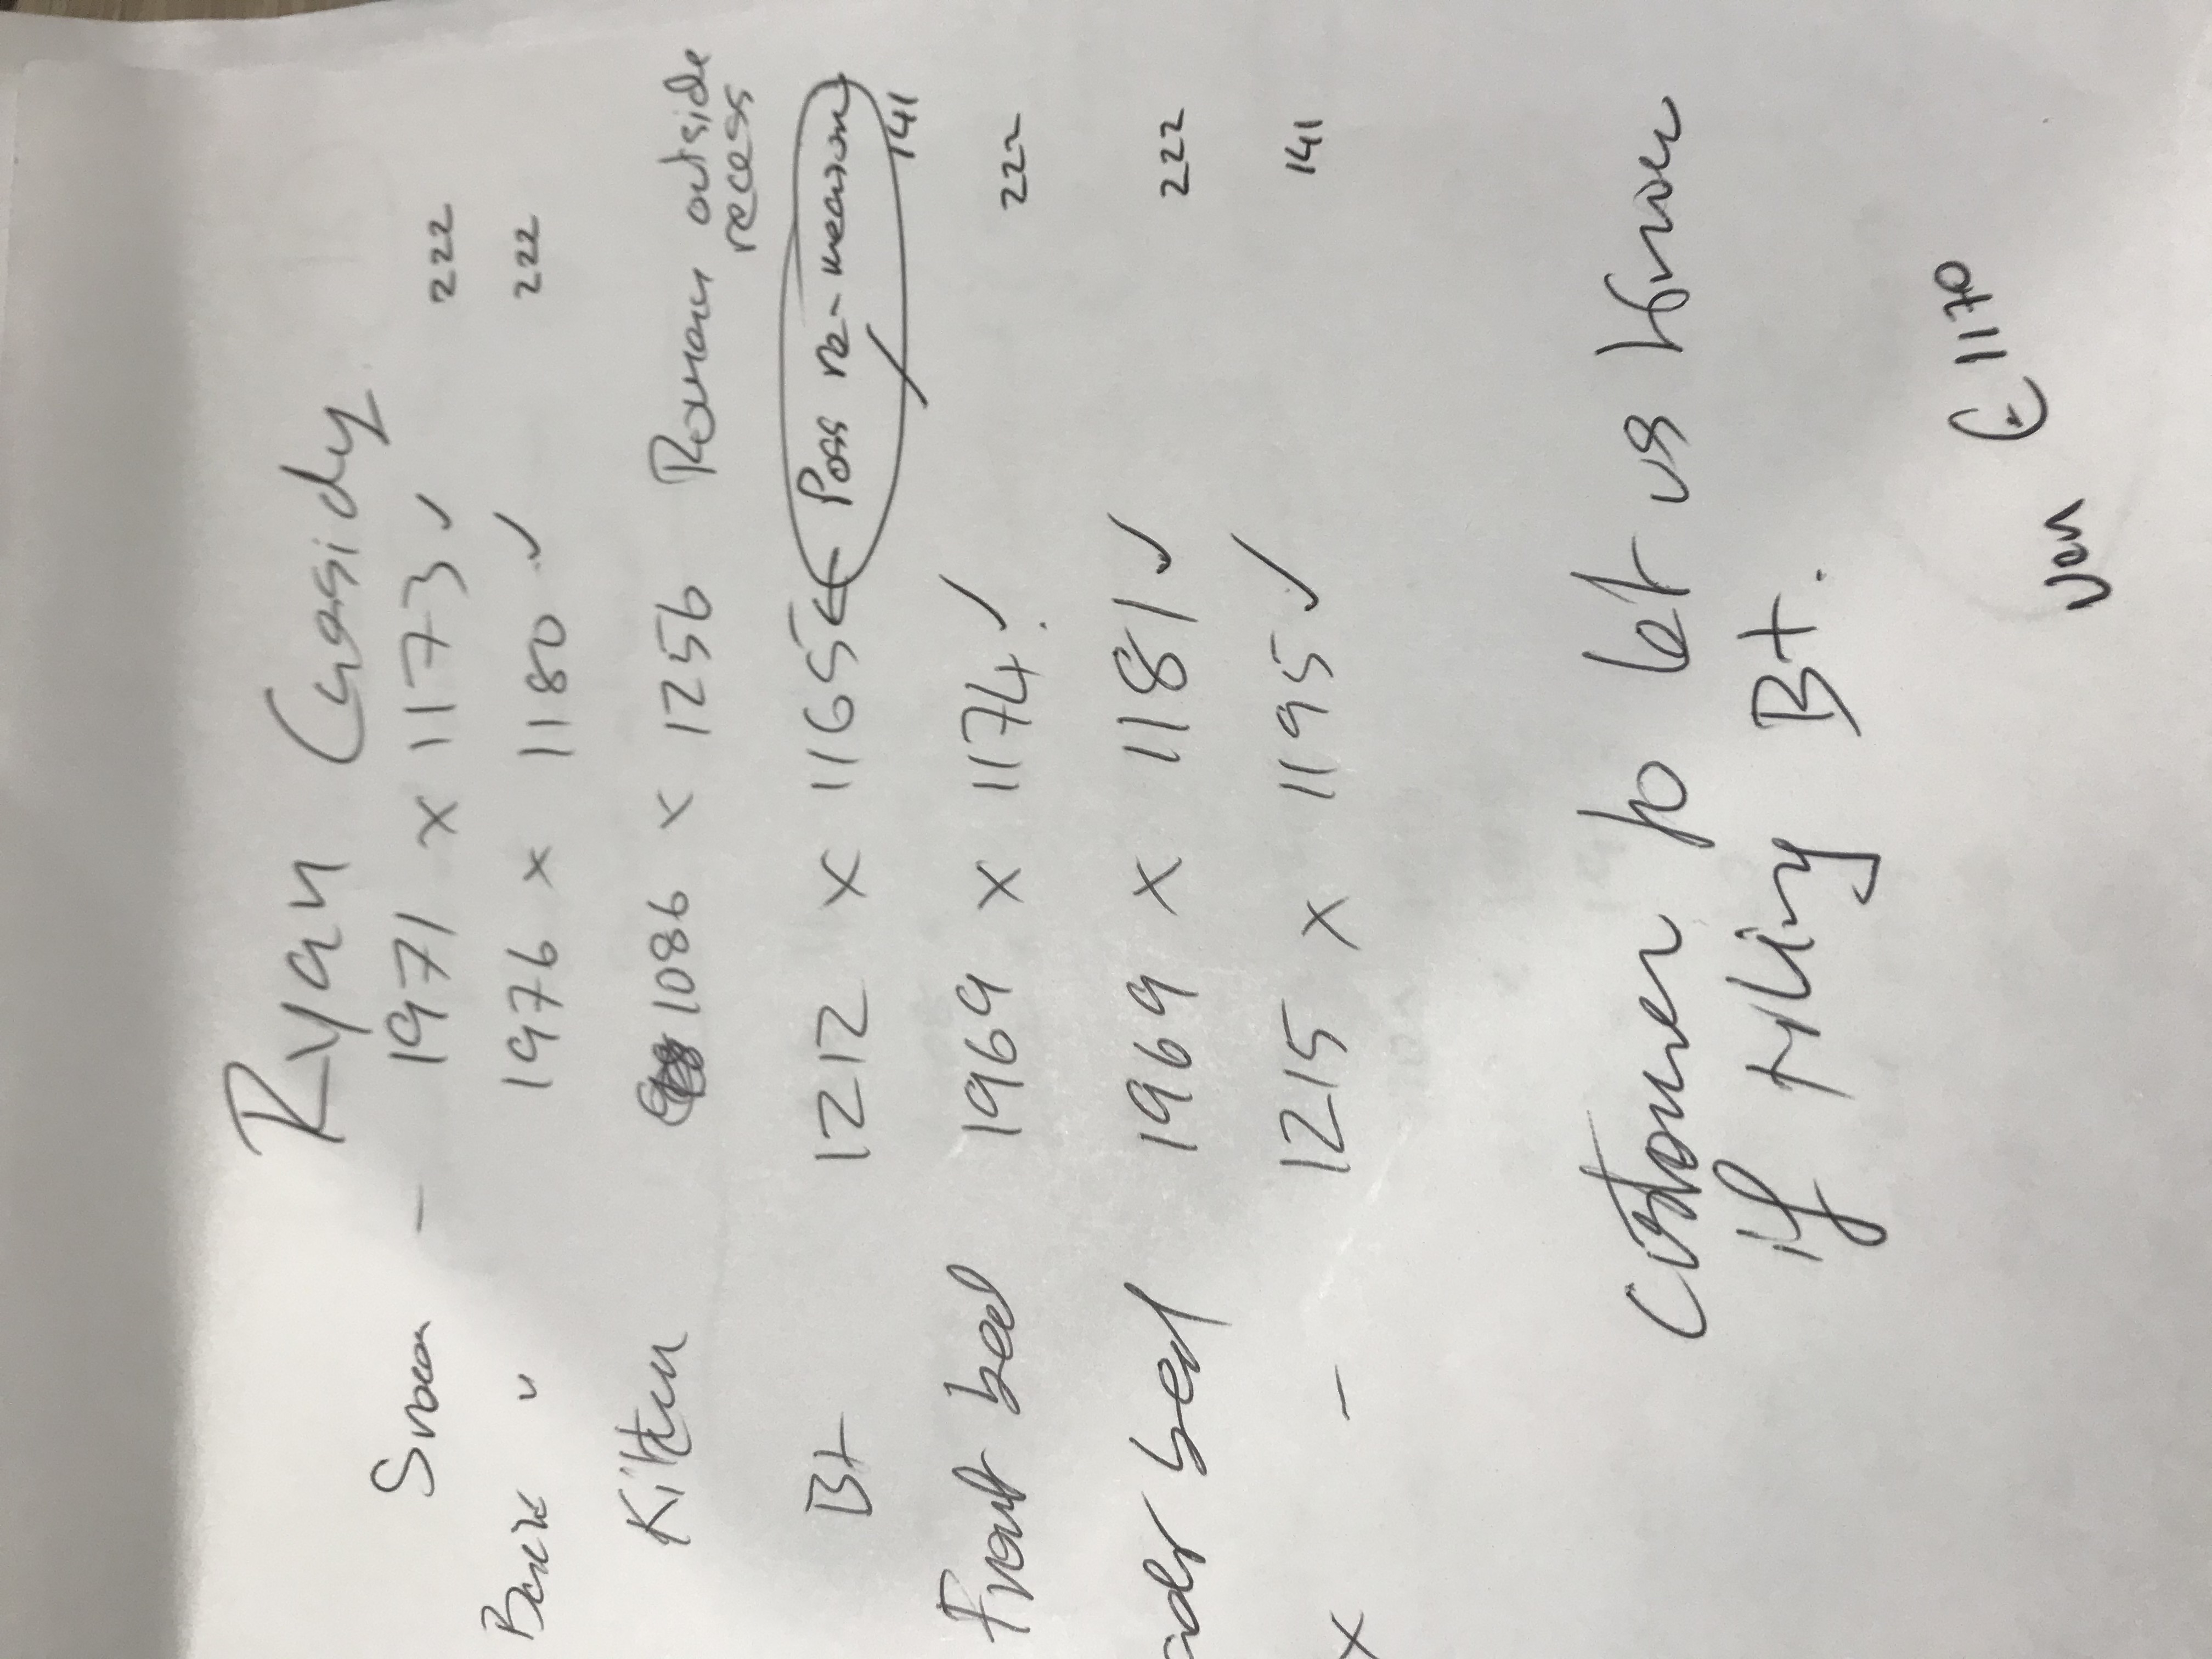 Ryan Cassidy
Snoom - 1971 x 1173 ✓ 222
Back " 1976 x 1180 ✓ 222
Kitten 1086 x 1256 Roman outside
recess
Bt 1212 x 1165 ← Poss re-measure 141
Front bed 1969 x 1174 ✓ 222
bed 1969 x 1181 ✓ 222
x - 1215 x 1195 ✓ 141
Customer to let us know
if tylling Bt.
van E 1170